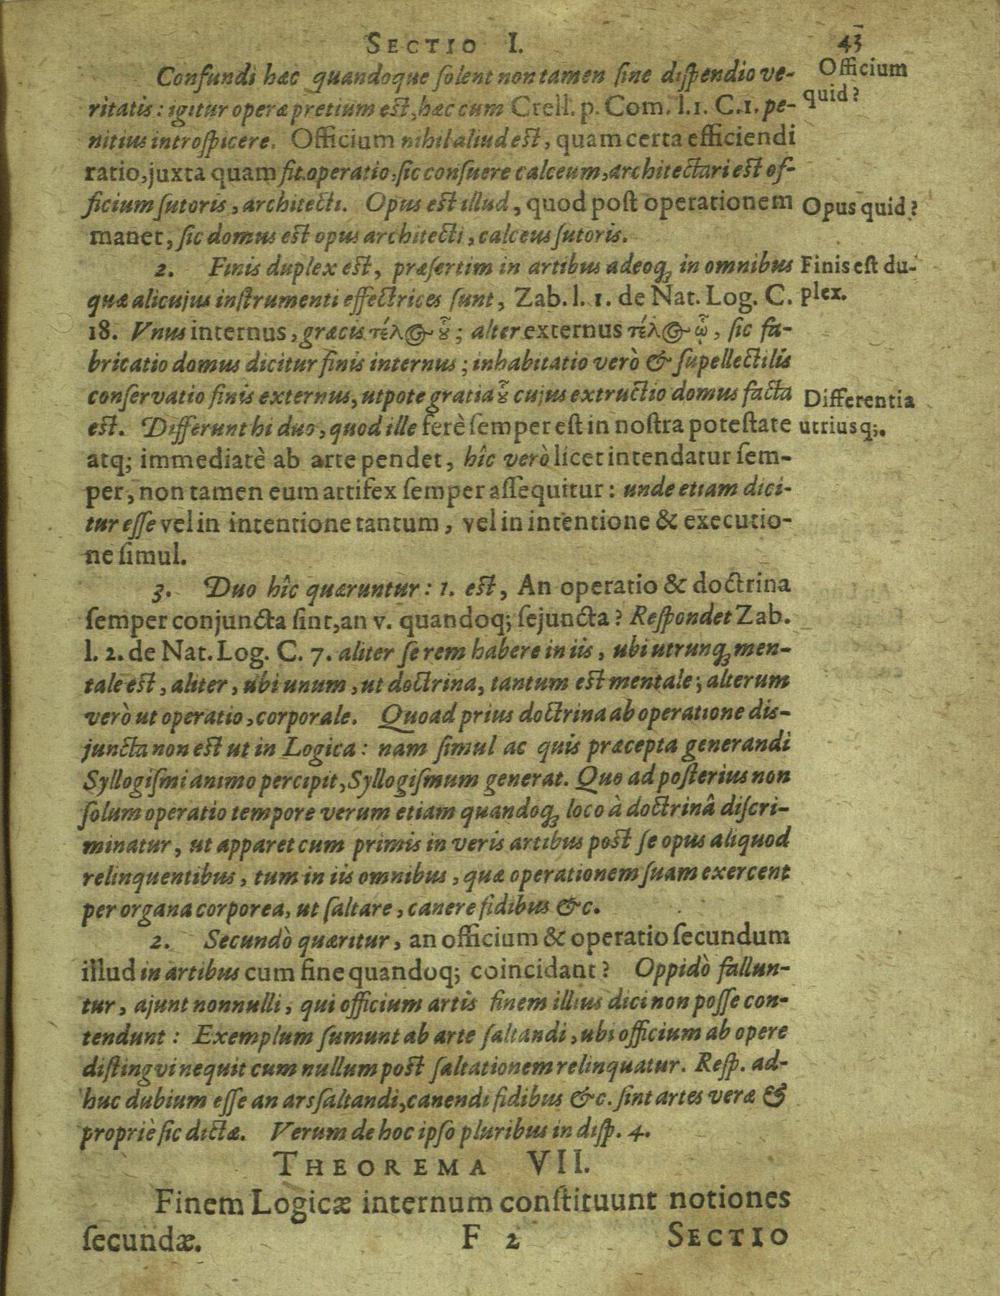 SECTIO I. 43
Confundi hæc quandoque ſolent non tamen ſine diſpendio ve-
Officium
ritatis: igitur operæ pretium est, hæc cum Crell. p. Com. l. 1. C. 1. pe-
quid?
nitius introſpicere. Officium nihil aliud est, quam certa efficiendi
ratio, juxta quam fit operatio, ſic conſuere calceum, architectari est of-
ficium ſutoris, architecti. Opus est illud, quod poſt operationem
Opus quid?
manet, ſic domus est opus architecti, calceus ſutoris.
2. Finis duplex est, præſertim in artibus adeoq; in omnibus
Finis eſt du-
quæ alicujus inſtrumenti effectrices ſunt, Zab. l. 1. de Nat. Log. C.
plex.
18. Vnus internus, græcis τέλ@ ὗ; alter externus τέλ@ ᾧ, ſic fa-
bricatio domus dicitur finis internus; inhabitatio verò & ſupellectilis
conſervatio finis externus, utpote gratia ὗ cujus extructio domus facta
Differentia
est. Differunt hi duo, quod ille ferè ſemper eſt in noſtra poteſtate
utriusq;.
atq; immediatè ab arte pendet, hîc verò licet intendatur ſem-
per, non tamen eum artifex ſemper aſſequitur: unde etiam dici-
tur eſſe vel in intentione tantum, vel in intentione & executio-
ne ſimul.
3. Duo hîc quæruntur: 1. est, An operatio & doctrina
ſemper conjuncta ſint, an v. quandoq; ſejuncta? Reſpondet Zab.
l. 2. de Nat. Log. C. 7. aliter ſe rem habere in iis, ubi utrunq; men-
tale est, aliter, ubi unum, ut doctrina, tantum est mentale; alterum
verò ut operatio, corporale. Quoad prius doctrina ab operatione dis-
juncta non est ut in Logica: nam ſimul ac quis præcepta generandi
Syllogiſmi animo percipit, Syllogiſmum generat. Quo ad poſterius non
ſolum operatio tempore verum etiam quandoq; loco à doctrinâ diſcri-
minatur, ut apparet cum primis in veris artibus post ſe opus aliquod
relinquentibus, tum in iis omnibus, quæ operationem ſuam exercent
per organa corporea, ut ſaltare, canere fidibus &c.
2. Secundò quæritur, an officium & operatio ſecundum
illud in artibus cum fine quandoq; coincidant? Oppidò fallun-
tur, ajunt nonnulli, qui officium artis finem illius dici non poſſe con-
tendunt: Exemplum ſumunt ab arte ſaltandi, ubi officium ab opere
diſtingvi nequit cum nullum post ſaltationem relinquatur. Reſp. ad-
huc dubium eſſe an ars ſaltandi, canendi fidibus &c. ſint artes veræ &
propriè ſic dictæ. Verum de hoc ipſo pluribus in diſp. 4.
THEOREMA VII.
Finem Logicæ internum conſtituunt notiones
ſecundæ. F 2 SECTIO